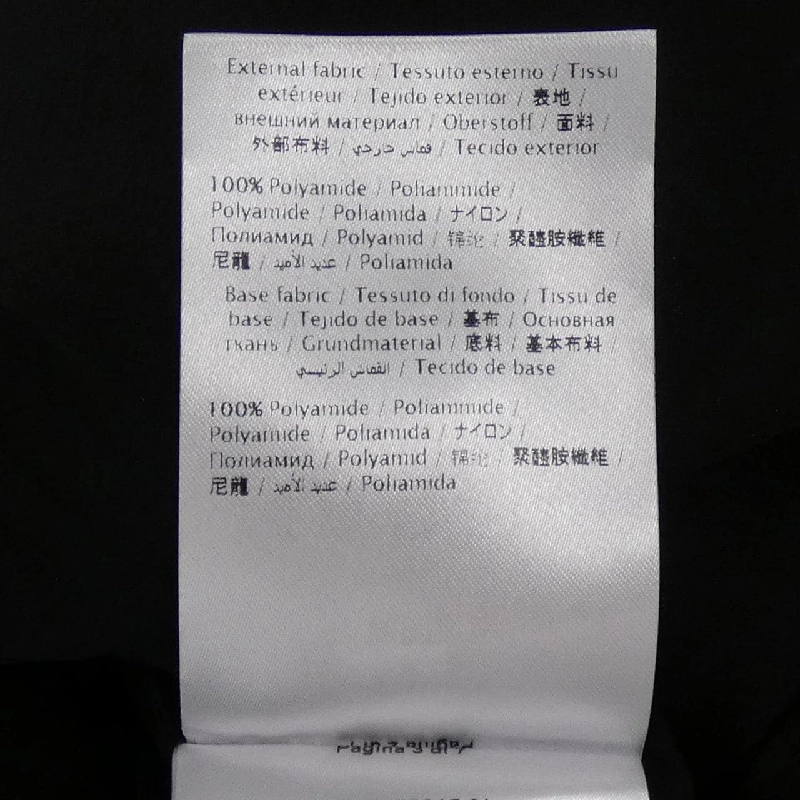 External fabric / Tessuto esterno / Tissu
extérieur / Tejido exterior / 表地 /
внешний материал / Oberstoff / 面料 /
外部布料 / قماش خارجي / Tecido exterior
100% Polyamide / Poliammide /
Polyamide / Poliamida / ナイロン /
Полиамид / Polyamid / 锦纶 / 聚醯胺纖維 /
尼龍 / عديد الأميد / Poliamida
Base fabric / Tessuto di fondo / Tissu de
base / Tejido de base / 基布 / Основная
ткань / Grundmaterial / 底料 / 基本布料 /
القماش الرئيسي / Tecido de base
100% Polyamide / Poliammide /
Polyamide / Poliamida / ナイロン /
Полиамид / Polyamid / 锦纶 / 聚醯胺纖維 /
尼龍 / عديد الأميد / Poliamida